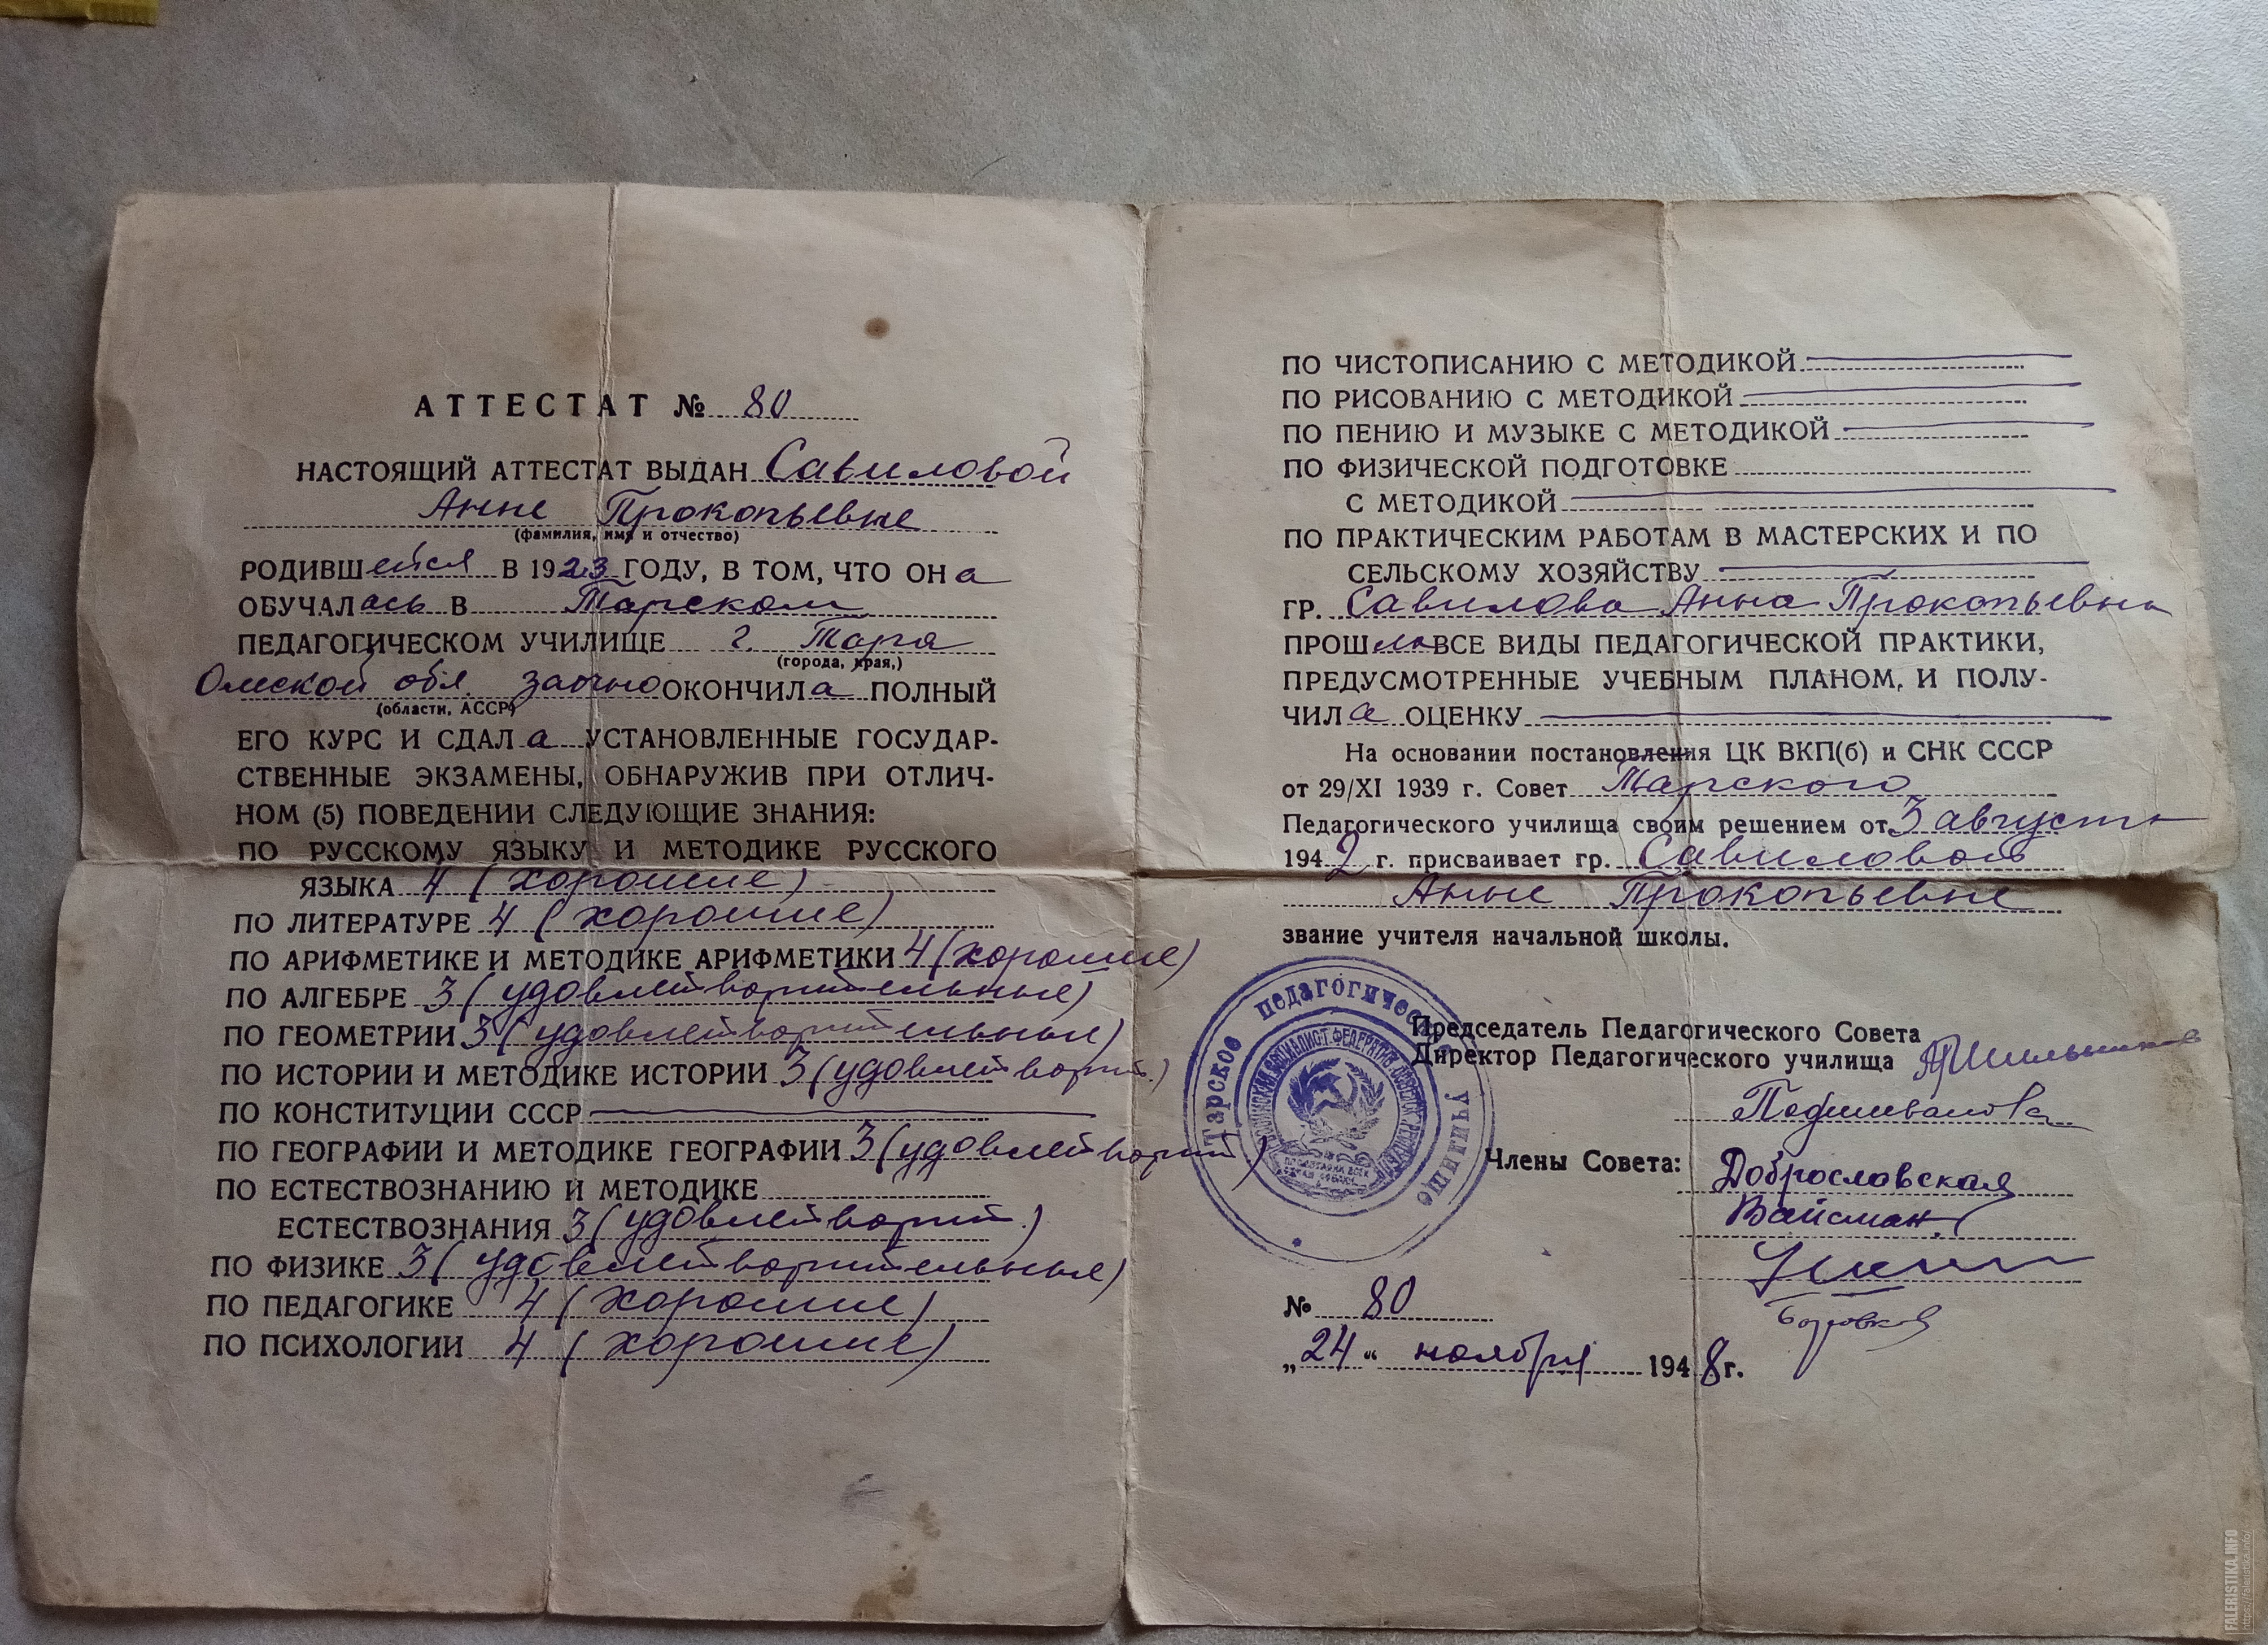 АТТЕСТАТ № 80
НАСТОЯЩИЙ АТТЕСТАТ ВЫДАН Савиловой
Анне Прокопьевне
(фамилия, имя и отчество)
РОДИВШейся В 1923 ГОДУ, В ТОМ, ЧТО ОНа
ОБУЧАЛась В Тарском
ПЕДАГОГИЧЕСКОМ УЧИЛИЩЕ г. Тара
(города, края,)
Омской обл. заочно ОКОНЧИЛа ПОЛНЫЙ
(области, АССР)
ЕГО КУРС И СДАЛа УСТАНОВЛЕННЫЕ ГОСУДАР-
СТВЕННЫЕ ЭКЗАМЕНЫ, ОБНАРУЖИВ ПРИ ОТЛИЧ-
НОМ (5) ПОВЕДЕНИИ СЛЕДУЮЩИЕ ЗНАНИЯ:
ПО РУССКОМУ ЯЗЫКУ И МЕТОДИКЕ РУССКОГО
ЯЗЫКА 4 (хорошие)
ПО ЛИТЕРАТУРЕ 4 (хорошие)
ПО АРИФМЕТИКЕ И МЕТОДИКЕ АРИФМЕТИКИ 4 (хорошие)
ПО АЛГЕБРЕ 3 (удовлетворительные)
ПО ГЕОМЕТРИИ 3 (удовлетворительные)
ПО ИСТОРИИ И МЕТОДИКЕ ИСТОРИИ 3 (удовлетворит.)
ПО КОНСТИТУЦИИ СССР
ПО ГЕОГРАФИИ И МЕТОДИКЕ ГЕОГРАФИИ 3 (удовлетворит)
ПО ЕСТЕСТВОЗНАНИЮ И МЕТОДИКЕ
ЕСТЕСТВОЗНАНИЯ 3 (удовлетворит.)
ПО ФИЗИКЕ 3 (удовлетворительные)
ПО ПЕДАГОГИКЕ 4 (хорошие)
ПО ПСИХОЛОГИИ 4 (хорошие)
ПО ЧИСТОПИСАНИЮ С МЕТОДИКОЙ
ПО РИСОВАНИЮ С МЕТОДИКОЙ
ПО ПЕНИЮ И МУЗЫКЕ С МЕТОДИКОЙ
ПО ФИЗИЧЕСКОЙ ПОДГОТОВКЕ
С МЕТОДИКОЙ
ПО ПРАКТИЧЕСКИМ РАБОТАМ В МАСТЕРСКИХ И ПО
СЕЛЬСКОМУ ХОЗЯЙСТВУ
ГР. Савилова Анна Прокопьевна
ПРОШла ВСЕ ВИДЫ ПЕДАГОГИЧЕСКОЙ ПРАКТИКИ,
ПРЕДУСМОТРЕННЫЕ УЧЕБНЫМ ПЛАНОМ, И ПОЛУ-
ЧИЛа ОЦЕНКУ
На основании постановления ЦК ВКП(б) и СНК СССР
от 29/XI 1939 г. Совет Тарского
Педагогического училища своим решением от 3 августа
1942 г. присваивает гр. Савиловой
Анне Прокопьевне
звание учителя начальной школы.
Тарское педагогическое училище
Председатель Педагогического Совета
Директор Педагогического училища
Члены Совета:
Доброславская
Вайсман
Боровков
№ 80
„24“ ноября 1948 г.
FALERISTIKA.INFO
https://faleristika.info/